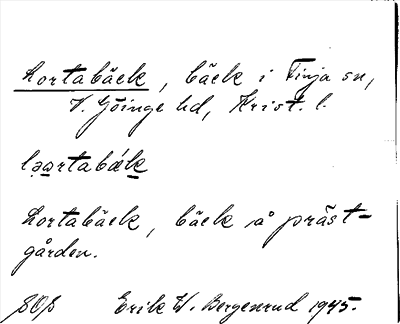 Lortabäck, bäck i Finja sn,
V. Göinge hd, Krist. l.
lo̤a̱rtabǽḵ
Lortabäck, bäck å präst-
gården.
Erik W. Bergenrud 1945.